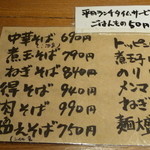 平日ランチタイムサービス
ごはんもの50円
中華そば 690円
煮玉そば 790円
ねぎそば 840円
得そば 940円
肉そば 990円
そば 750円
トッピ
煮玉
のり
メンマ
ねぎ
麺